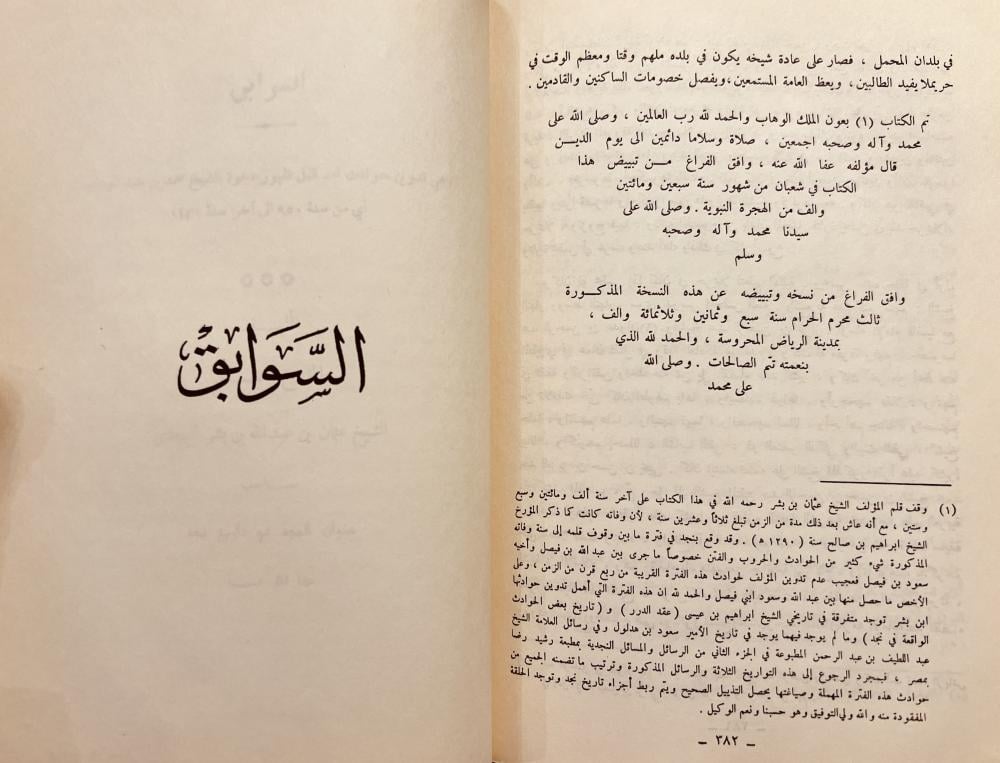 في بلدان المحمل ، فصار على عادة شيخه يكون في بلده ملهم وقتا ومعظم الوقت في
حريملا يفيد الطالبين ، ويعظ العامة المستمعين ، ويفصل خصومات الساكنين والقادمين .
تم الكتاب (١) بعون الملك الوهاب والحمد لله رب العالمين ، وصلى الله على
محمد وآله وصحبه اجمعين ، صلاة وسلاما دائمين الى يوم الديـــن
قال مؤلفه عفا الله عنه ، وافق الفراغ مـــن تبييض هذا
الكتاب في شعبان من شهور سنة سبعين ومائتين
والف من الهجرة النبوية . وصلى الله على
سيدنا محمد وآله وصحبه
وسلم
وافق الفراغ من نسخه وتبييضه عن هذه النسخة المذكـــورة
ثالث محرم الحرام سنة سبع وثمانين وثلاثمائة والف ،
بمدينة الرياض المحروسة ، والحمد لله الذي
بنعمته تتم الصالحات . وصلى الله
على محمد
(١) وقف قلم المؤلف الشيخ عثمان بن بشر رحمه الله في هذا الكتاب على آخر سنة ألف ومائتين وسبع
وستين ، مع أنه عاش بعد ذلك مدة من الزمن تبلغ ثلاثاً وعشرين سنة ، لأن وفاته كانت كما ذكر المؤرخ
الشيخ ابراهيم بن صالح سنة ( ١٢٩٠ هـ ) . وقد وقع بنجد في فترة ما بين وقوف قلمه إلى سنة وفاته
المذكورة شيء كثير من الحوادث والحروب والفتن خصوصاً ما جرى بين عبد الله بن فيصل وأخيه
سعود بن فيصل فعجيب عدم تدوين المؤلف لحوادث هذه الفترة القريبة من ربع قرن من الزمن ، وعلى
الأخص ما حصل منها بين عبد الله وسعود ابني فيصل والحمد لله ان هذه الفترة التي أهمل تدوين حوادثها
ابن بشر توجد متفرقة في تاريخي الشيخ ابراهيم بن عيسى ( عقد الدرر ) و ( تاريخ بعض الحوادث
الواقعة في نجد ) وما لم يوجد فيهما يوجد في تاريخ الأمير سعود بن هذلول وفي رسائل العلامة الشيخ
عبد اللطيف بن عبد الرحمن المطبوعة في الجزء الثاني من الرسائل والمسائل النجدية بمطبعة رشيد رضا
بمصر ، فبمجرد الرجوع إلى هذه التواريخ الثلاثة والرسائل المذكورة وترتيب ما تضمنه الجميع من
حوادث هذه الفترة المهملة وصياغتها يحصل التذييل الصحيح ويتم ربط أجزاء تاريخ نجد وتوجد الحلقة
المفقودة منه والله ولي التوفيق وهو حسبنا ونعم الوكيل .
– ٣٨٢ –
السَّوَابِق